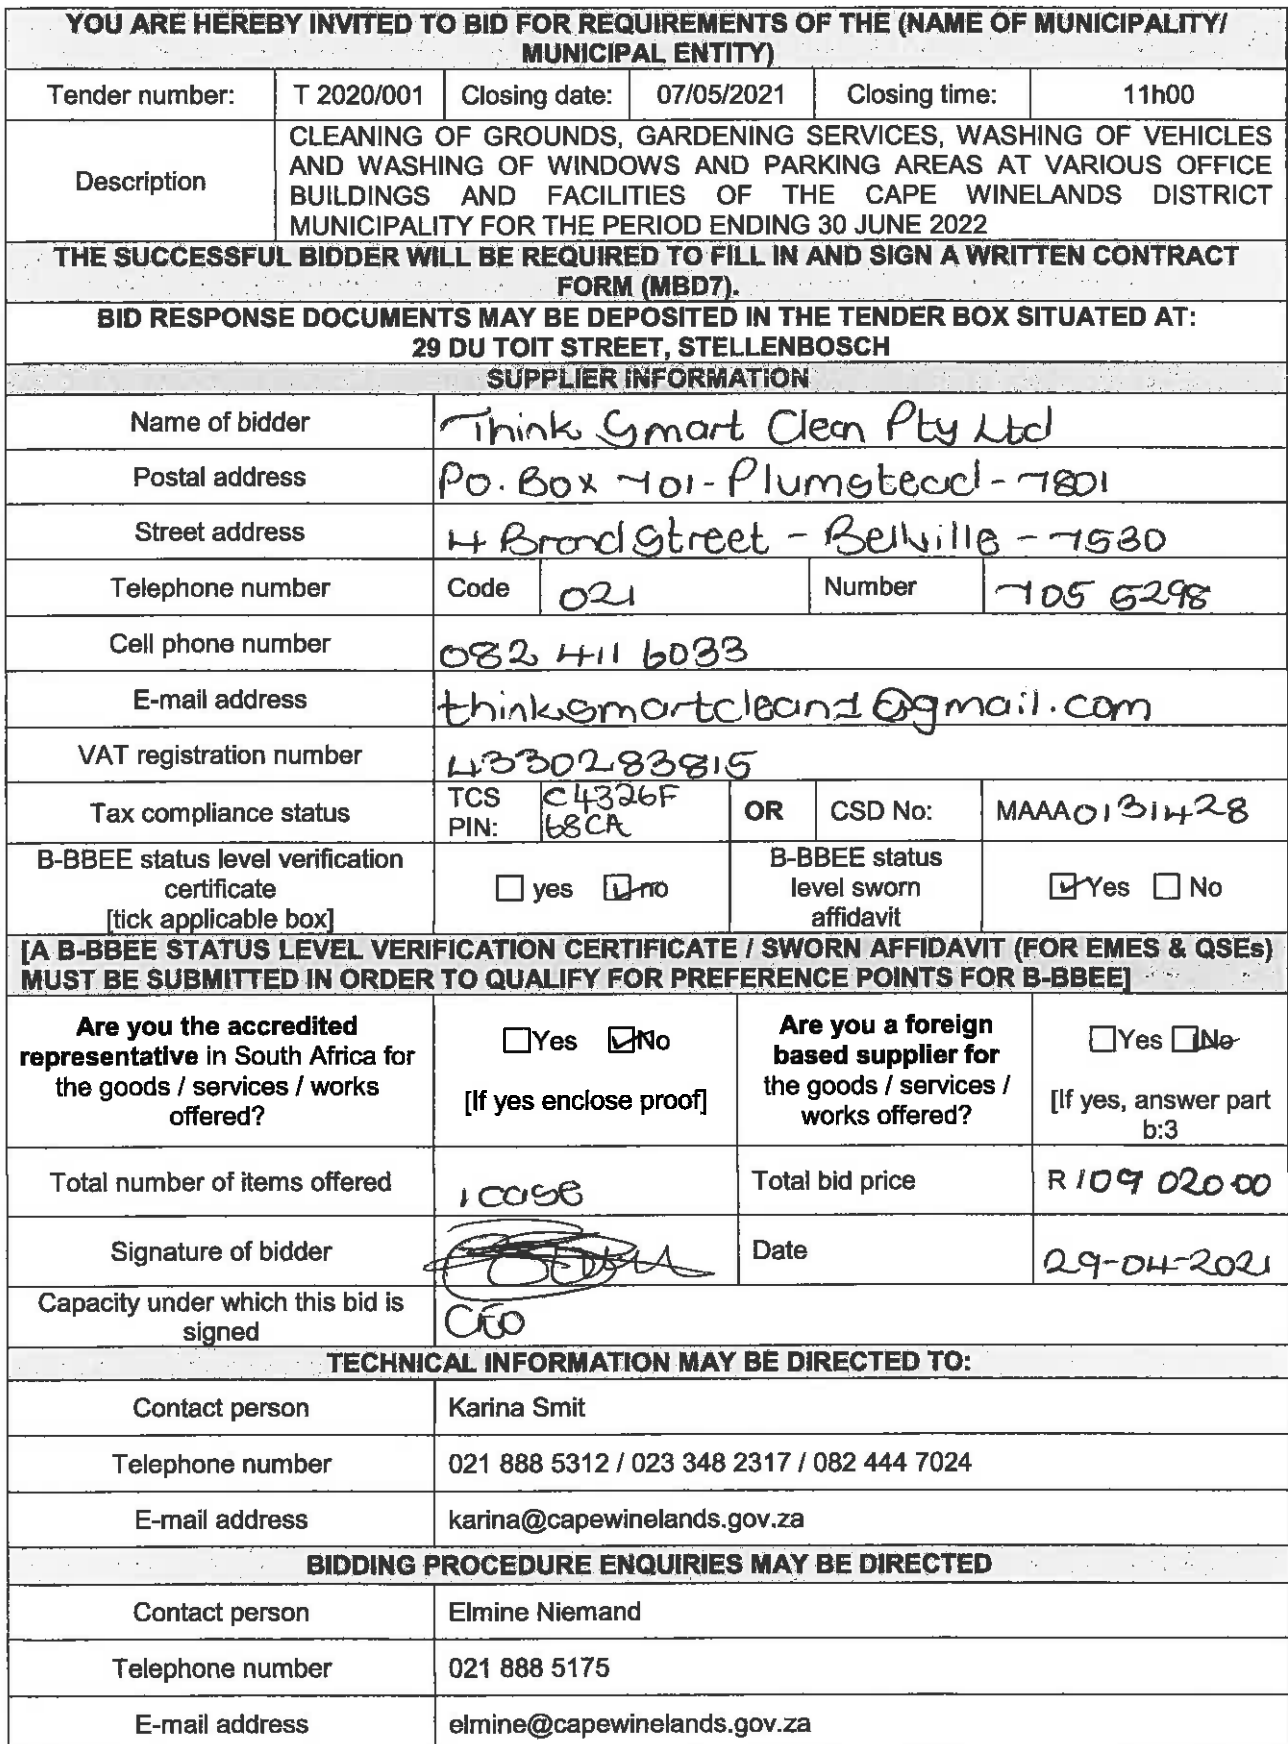 YOU ARE HEREBY INVITED TO BID FOR REQUIREMENTS OF THE (NAME OF MUNICIPALITY/
MUNICIPAL ENTITY)
Tender number: T 2020/001 Closing date: 07/05/2021 Closing time: 11h00
Description
CLEANING OF GROUNDS, GARDENING SERVICES, WASHING OF VEHICLES
AND WASHING OF WINDOWS AND PARKING AREAS AT VARIOUS OFFICE
BUILDINGS AND FACILITIES OF THE CAPE WINELANDS DISTRICT
MUNICIPALITY FOR THE PERIOD ENDING 30 JUNE 2022
THE SUCCESSFUL BIDDER WILL BE REQUIRED TO FILL IN AND SIGN A WRITTEN CONTRACT
FORM (MBD7).
BID RESPONSE DOCUMENTS MAY BE DEPOSITED IN THE TENDER BOX SITUATED AT:
29 DU TOIT STREET, STELLENBOSCH
SUPPLIER INFORMATION
Name of bidder Think Smart Clean Pty Ltd
Postal address Po. Box 701 - Plumstead - 7801
Street address 4 Brond Street - Bellville - 7530
Telephone number Code 021 Number 705 5298
Cell phone number 082 411 6033
E-mail address thinksmartclean1@gmail.com
VAT registration number 43302 83815
Tax compliance status
TCS PIN:
C4326F
68CA
OR CSD No: MAAA0131428
B-BBEE status level verification
certificate
[tick applicable box]
yes no
B-BBEE status
level sworn
affidavit
Yes No
[A B-BBEE STATUS LEVEL VERIFICATION CERTIFICATE / SWORN AFFIDAVIT (FOR EMES & QSEs)
MUST BE SUBMITTED IN ORDER TO QUALIFY FOR PREFERENCE POINTS FOR B-BBEE]
Are you the accredited
representative in South Africa for
the goods / services / works
offered?
Yes No
[If yes enclose proof]
Are you a foreign
based supplier for
the goods / services /
works offered?
Yes No
[If yes, answer part
b:3
Total number of items offered 1 case Total bid price R 109 020.00
Signature of bidder Date 29-04-2021
Capacity under which this bid is
signed
CEO
TECHNICAL INFORMATION MAY BE DIRECTED TO:
Contact person Karina Smit
Telephone number 021 888 5312 / 023 348 2317 / 082 444 7024
E-mail address karina@capewinelands.gov.za
BIDDING PROCEDURE ENQUIRIES MAY BE DIRECTED
Contact person Elmine Niemand
Telephone number 021 888 5175
E-mail address elmine@capewinelands.gov.za